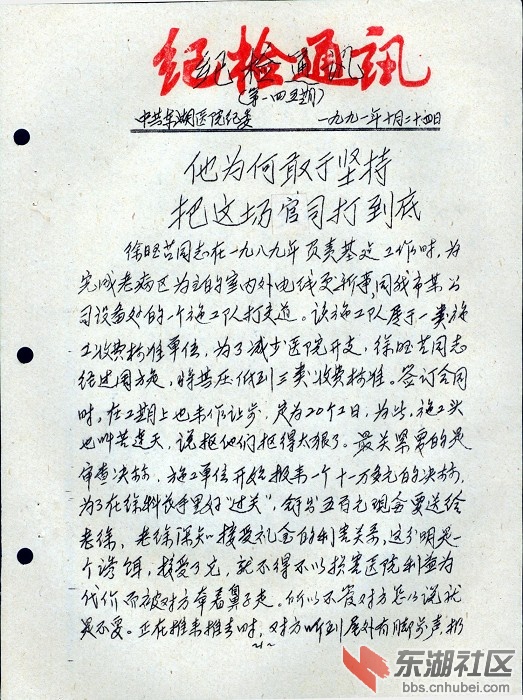 纪检通讯
纪检通讯
(第一四五期)
中共东湖医院纪委 一九九一年十月二十四日
他为何敢于坚持
把这场官司打到底
徐旺苦同志在一九八九年负责基建工作时,为
完成老病区为主的室内外电线更新事,同我市某公
司设备处的一个施工队打交道。该施工队属于一类施
工收费标准单位,为了减少医院开支,徐旺苦同志
经过周旋,将其压低到三类收费标准。签订合同
时,在工期上也未作让步,定为20个工日,为此,施工头
也叫苦连天,说抠他们抠得太狠了。最关紧要的是
审查决标,施工单位开始报来一个十一万多元的决标,
为了在徐科长手里好“过关”,拿出五百元现金要送给
老徐,老徐深知接受礼金的利害关系,这分明是一
个诱饵,接受了它,就不得不以损害医院利益为
代价而被对方牵着鼻子走。所以不管对方怎么说就
是不要。正在推来推去时,对方听到屋外有脚步声,扔
-1-
东湖社区
bbs.cnhubei.com